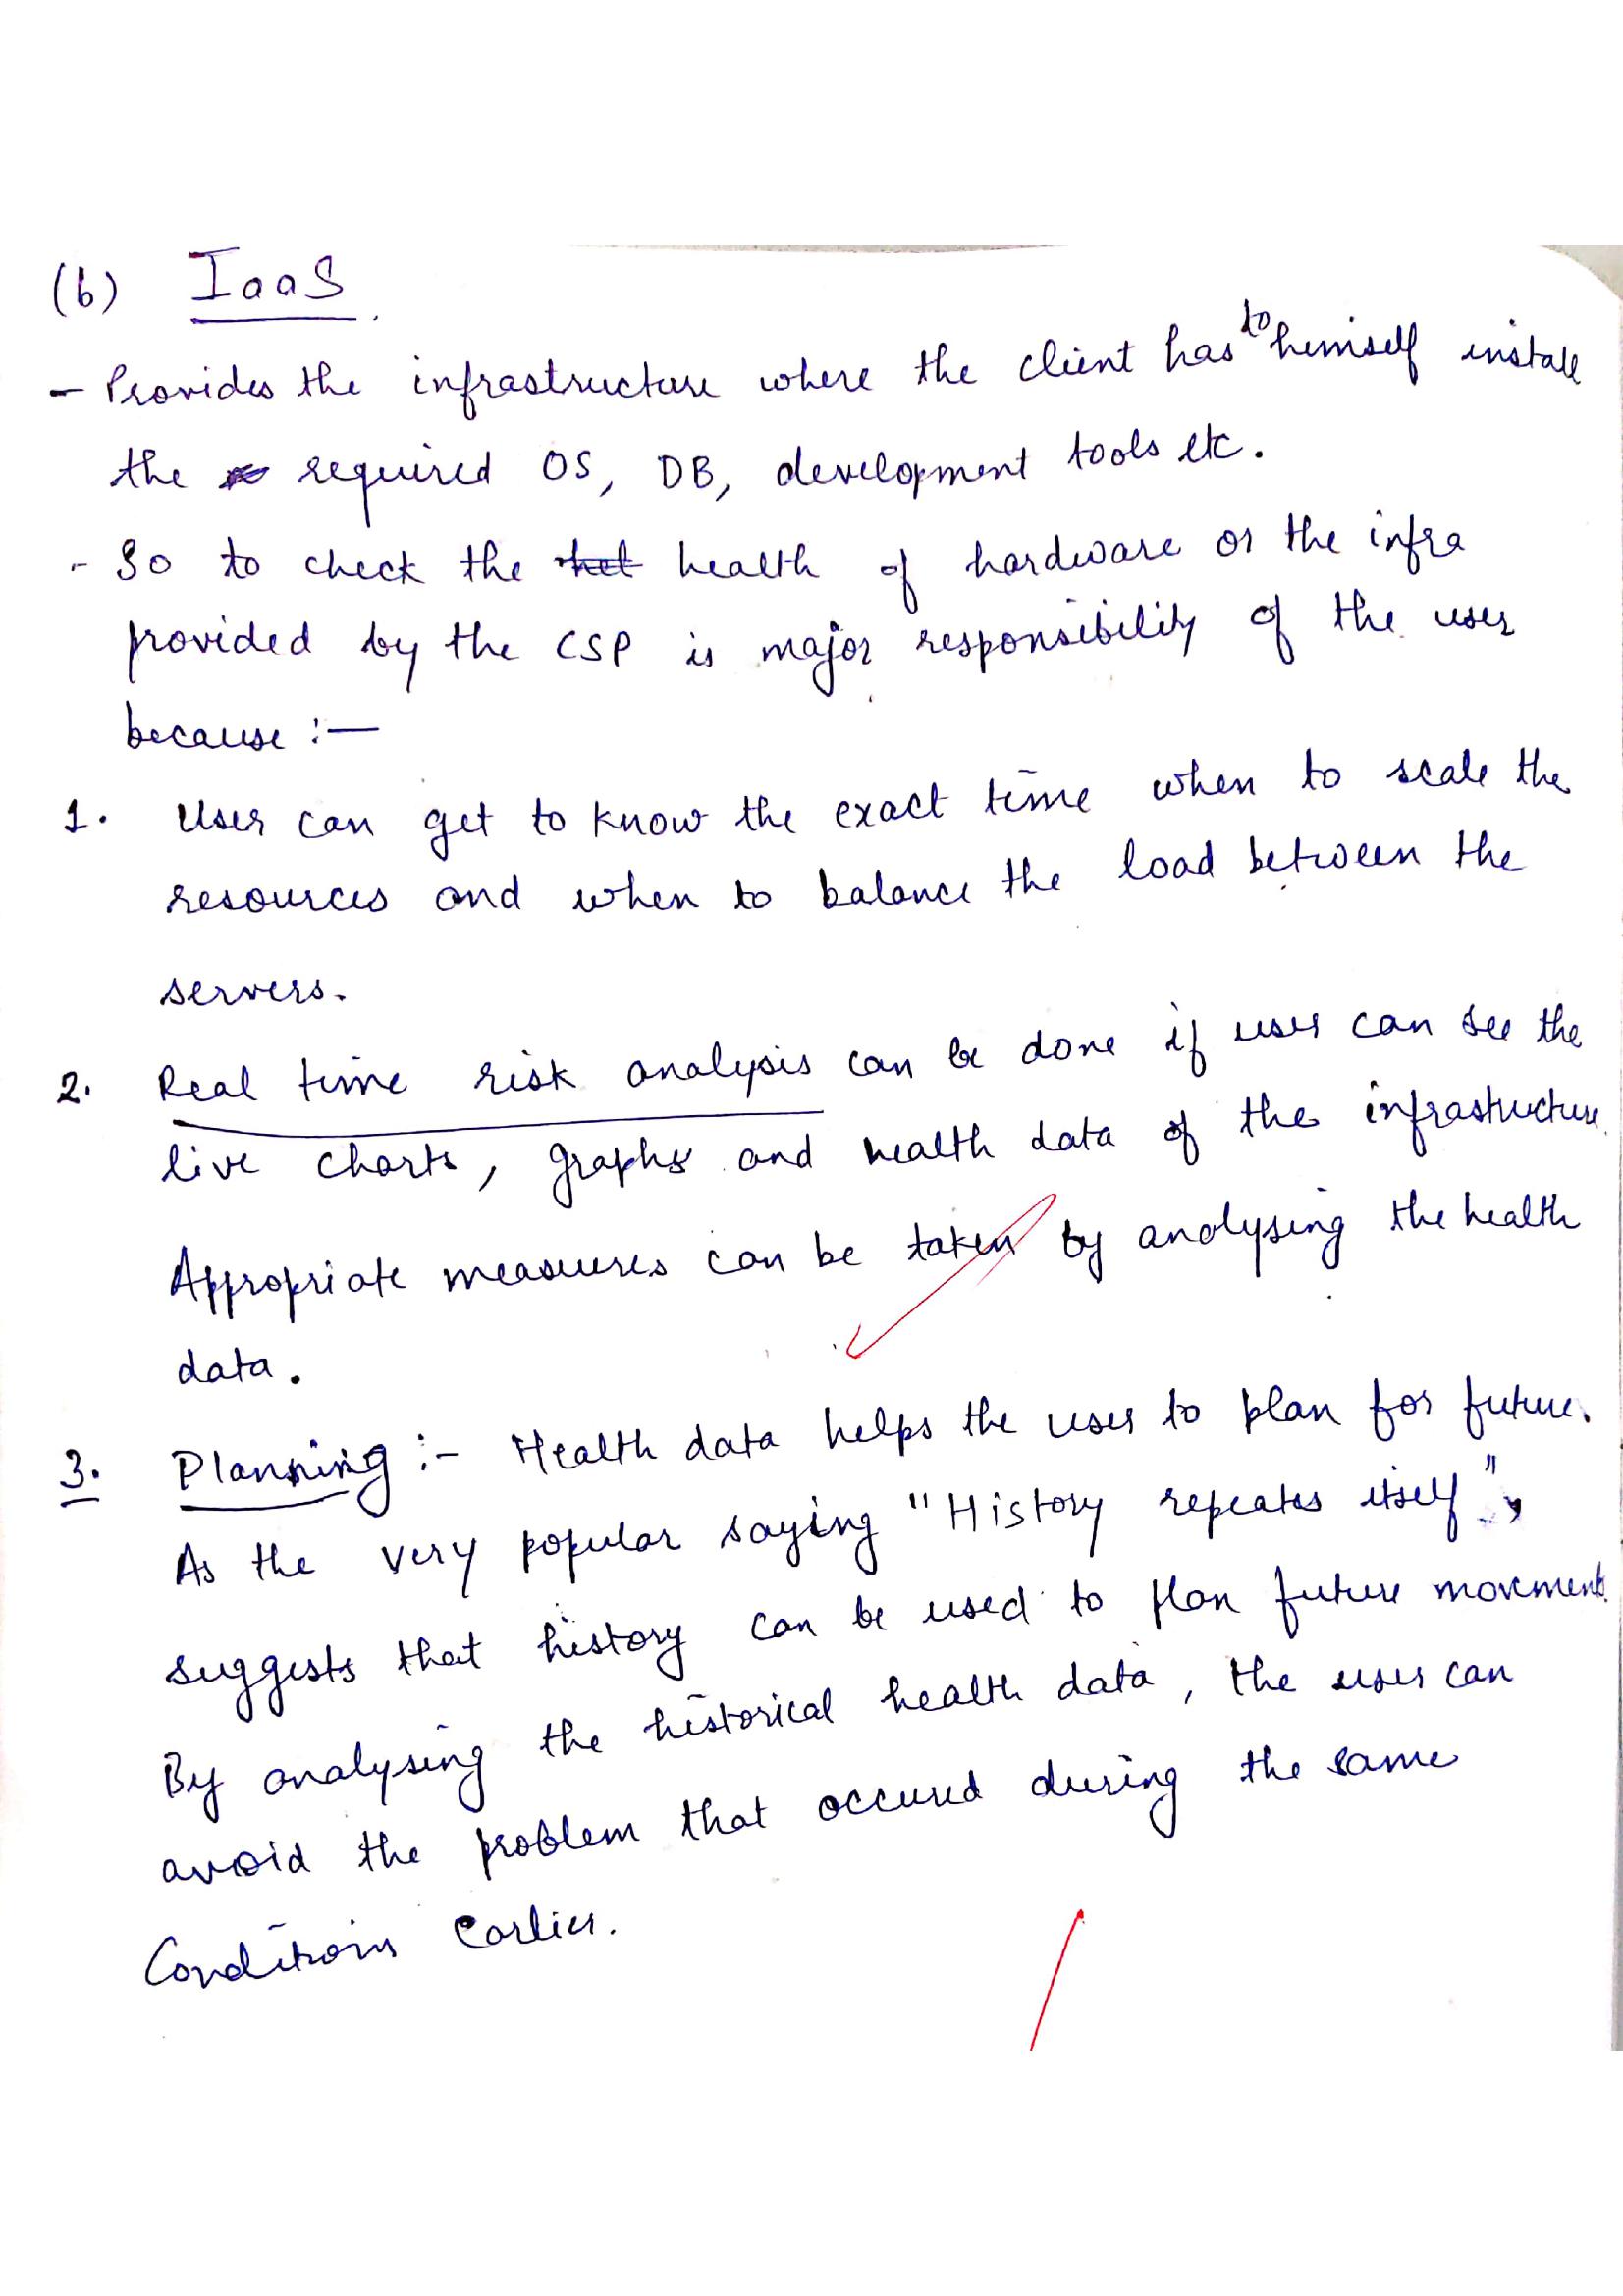 (b) IaaS
- Provides the infrastructure where the client has to himself install
the required OS, DB, development tools etc.
- So to check the health of hardware or the infra
provided by the CSP is major responsibility of the user
because :-
1. User can get to know the exact time when to scale the
resources and when to balance the load between the
servers.
2. Real time risk analysis can be done if user can see the
live charts, graphs and health data of the infrastructure.
Appropriate measures can be taken by analysing the health
data.
3. Planning :- Health data helps the user to plan for future.
As the very popular saying "History repeates itself",
suggests that history can be used to plan future movements.
By analysing the historical health data, the user can
avoid the problem that occured during the same
Conditions Earlier.